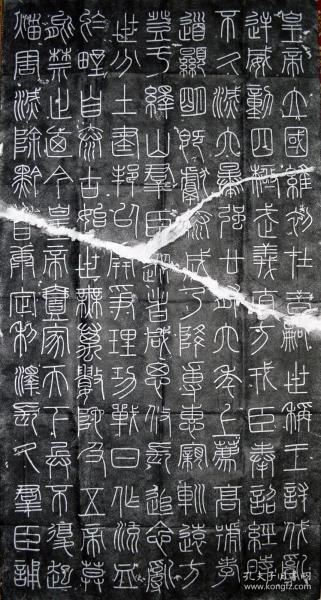 皇帝立國維初在昔嗣世稱王討伐亂
逆威動四極武義直方戎臣奉詔經時
不久滅六暴強廿有六年上薦高號孝
道顯明既獻泰成乃降尃惠寴巡遠方
登于繹山羣臣從者咸思攸長追念亂
世分土建邦以開爭理功戰日作流血
於野自泰古始世無萬數陀及五帝莫
能禁止廼今皇帝壹家天下兵不復起
烖害滅除黔首康定利澤長久羣臣誦
孔夫子旧书网
kongfz.com